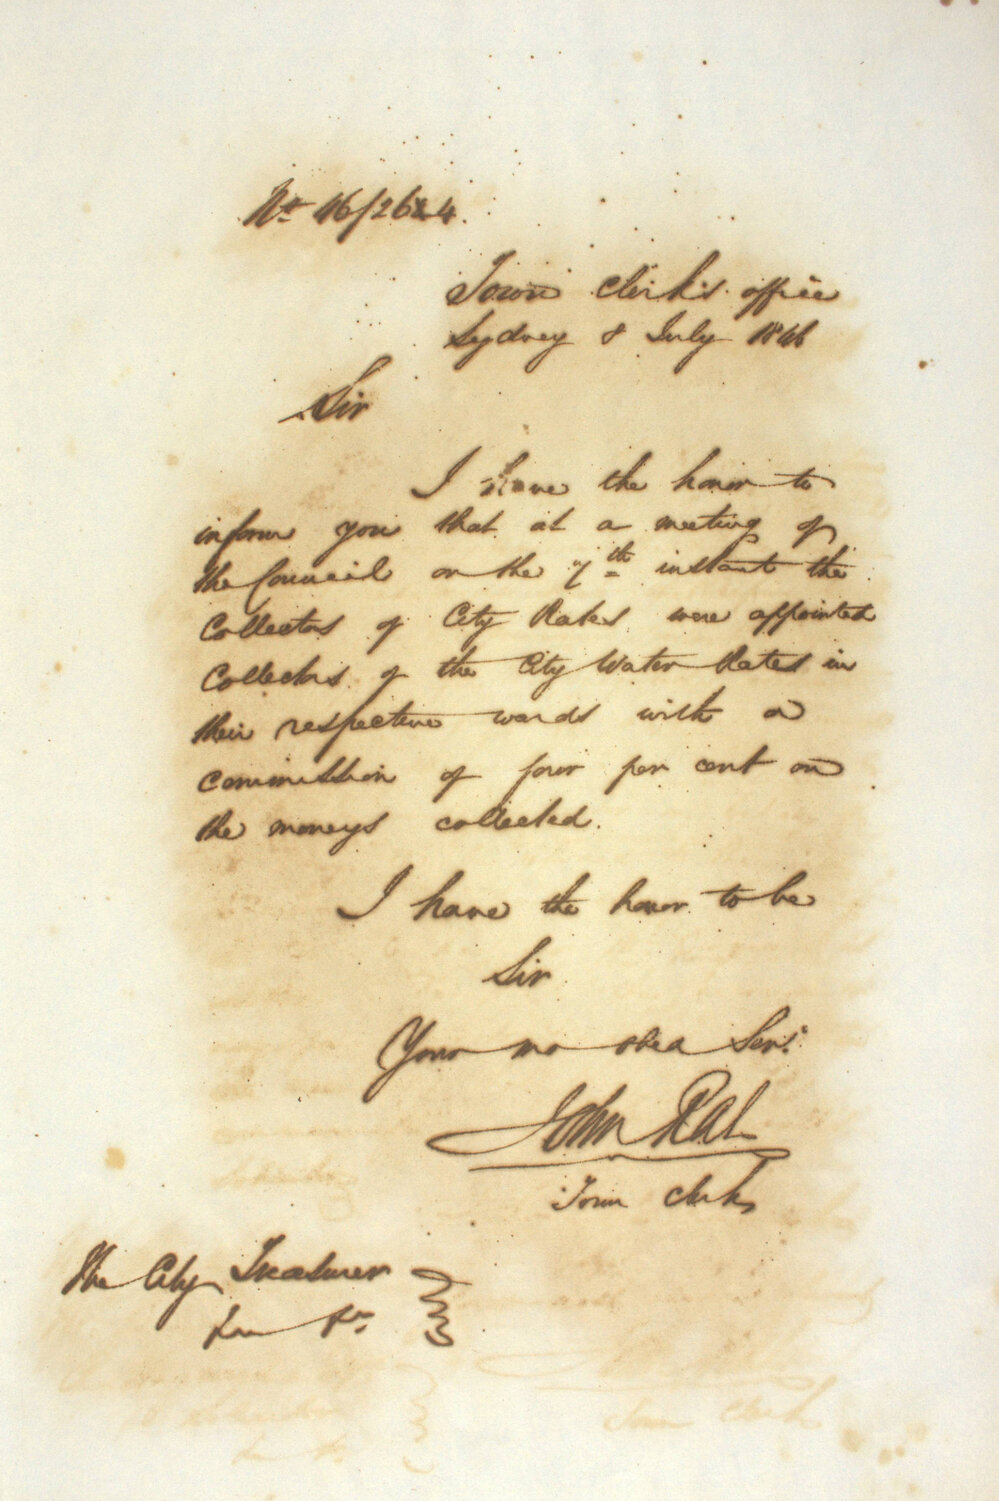 No 46/264.
Town Clerk's office
Sydney 8 July 1846
Sir
I have the honor to
inform you that at a meeting of
the Council on the 7th instant the
Collectors of City Rates were appointed
Collectors of the City Water Rates in
their respective wards with a
commission of four per cent on
the moneys collected.
I have the honor to be
Sir
Your mo obed Servt
John Rae
Town Clerk
The City Treasurer